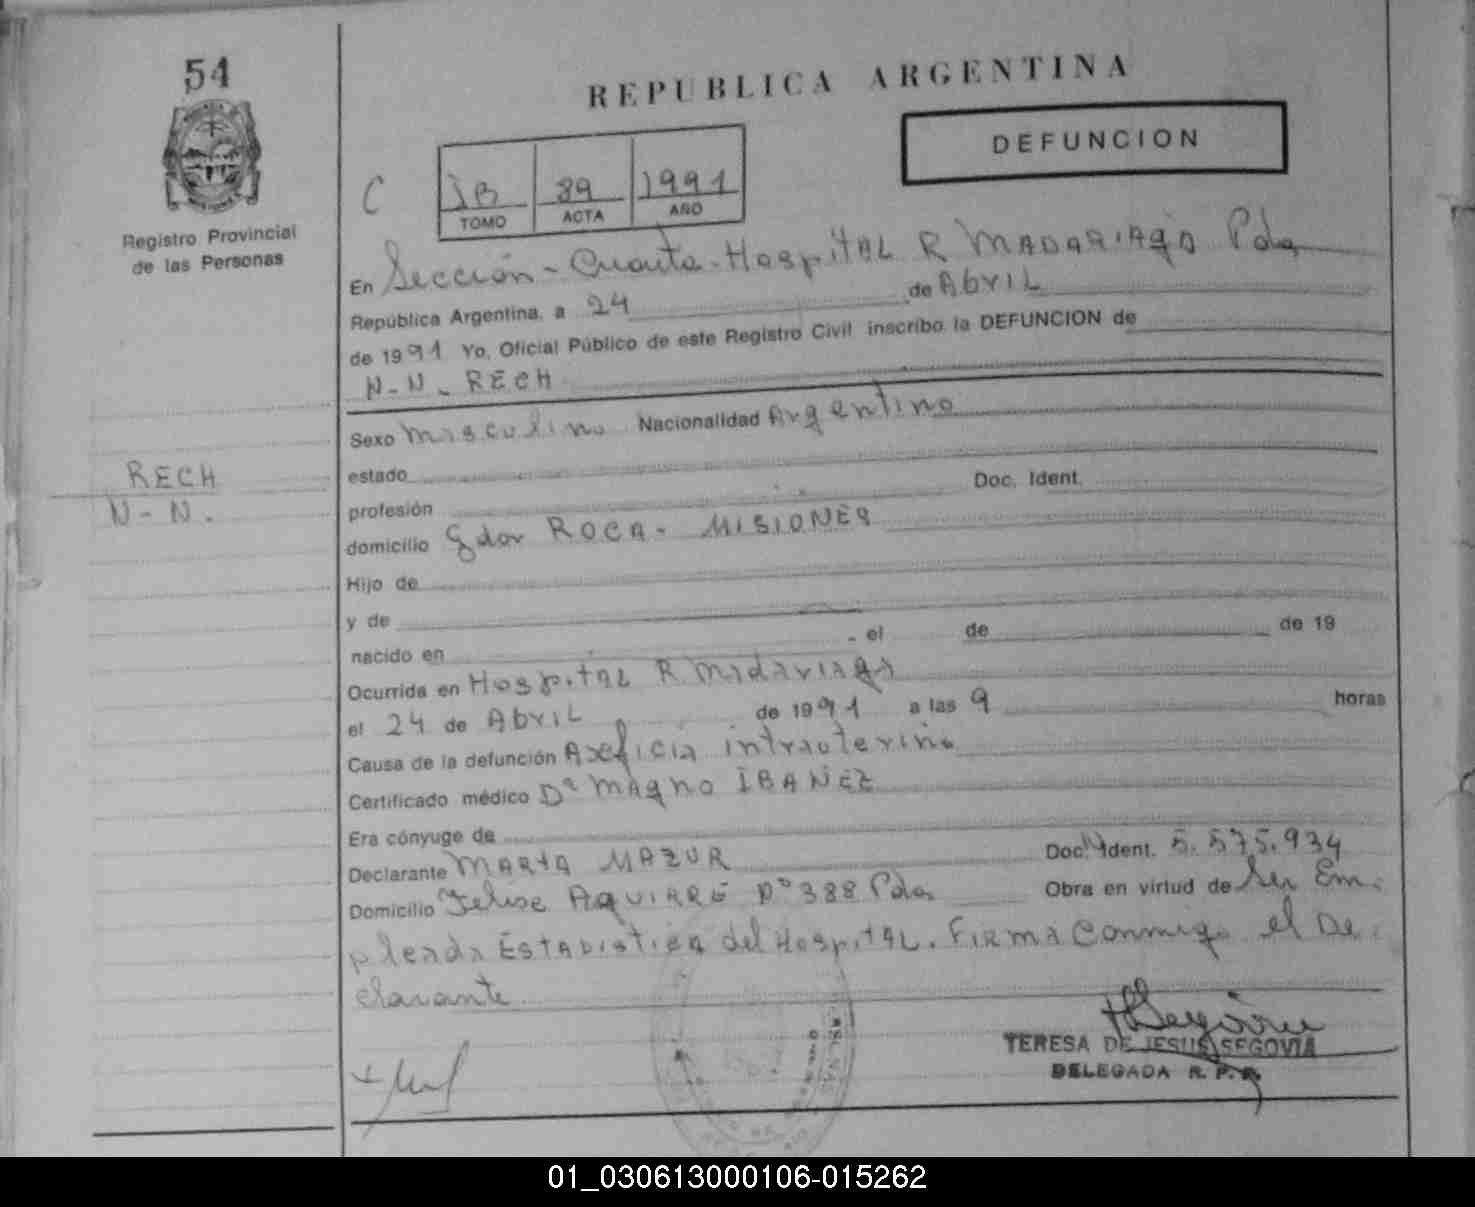 54
REPUBLICA ARGENTINA
DEFUNCION
C
1B 89 1991
TOMO ACTA AÑO
Registro Provincial
de las Personas
En Sección - Cuarta - Hospital R Madariaga Pdas
República Argentina, a 24 de Abril
de 1991 Yo, Oficial Público de este Registro Civil inscribo la DEFUNCION de
N-N- RECH
Sexo masculino Nacionalidad Argentino
estado
RECH
N-N.
profesión Doc. Ident.
domicilio Gdor ROCA - MISIONES
Hijo de
y de
nacido en el de de 19
Ocurrida en Hospital R Madariaga
el 24 de Abril de 1991 a las 9 horas
Causa de la defunción Axeficia intrauterina
Certificado médico Dr Magno IBAÑEZ
Era cónyuge de
Declarante MARTA MAZUR Doc. Ident. 5.575.934
Domicilio Felise AGUIRRE Nº 388 Pdas Obra en virtud de ser Em-
pleada Estadistica del Hospital. Firma conmigo el De-
clarante
TERESA DE JESUS SEGOVIA
DELEGADA R. P. P.
01_030613000106-015262